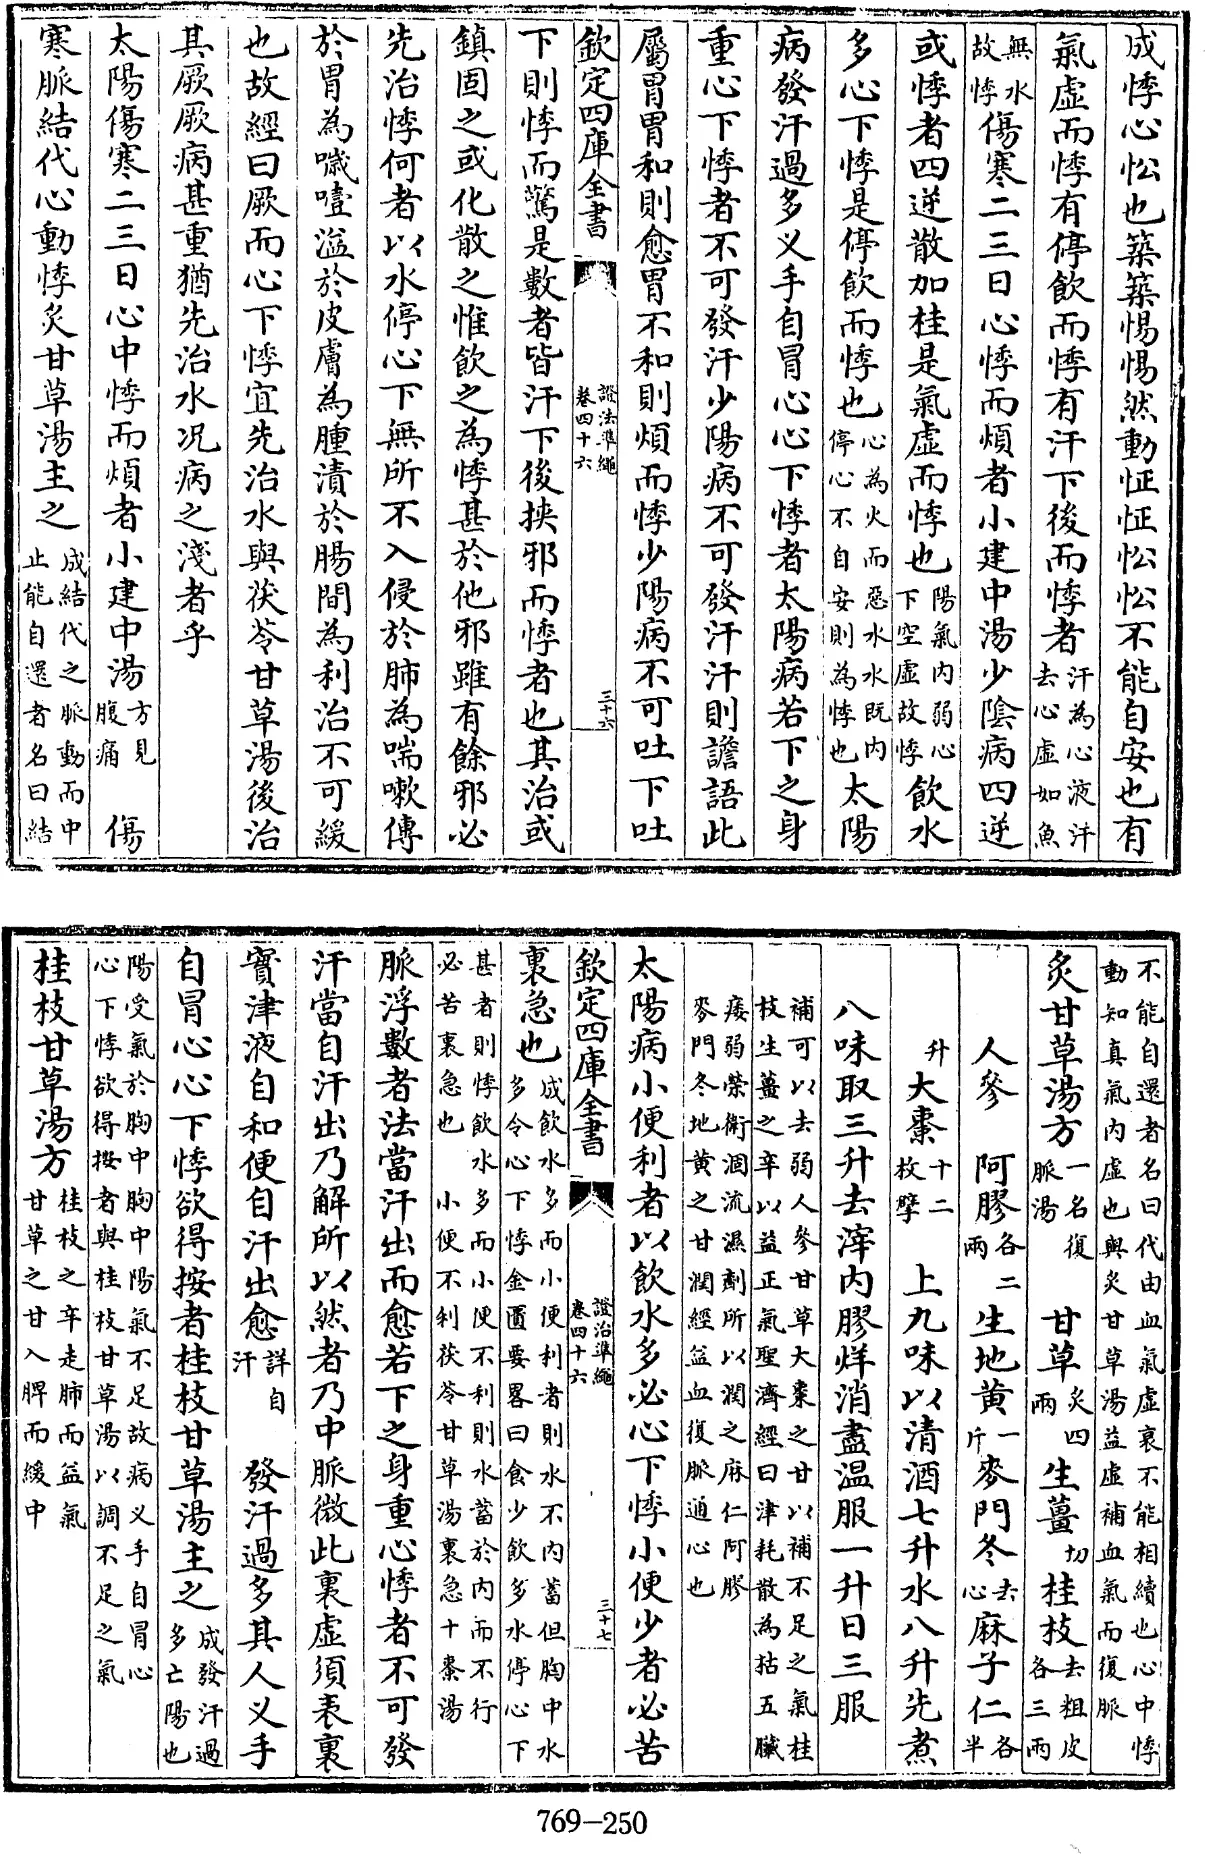 成悸心忪也築築惕惕然動怔怔忪忪不能自安也有
氣虛而悸有停飲而悸有汗下後而悸者汗為心液汗去心虛如魚
無水故悸傷寒二三日心悸而煩者小建中湯少陰病四逆
或悸者四逆散加桂是氣虛而悸也陽氣内弱心下空虛故悸飲水
多心下悸是停飲而悸也心為火而惡水水既内停心不自安則為悸也太陽
病發汗過多义手自冒心心下悸者太陽病若下之身
重心下悸者不可發汗少陽病不可發汗汗則譫語此
屬胃胃和則愈胃不和則煩而悸少陽病不可吐下吐
欽定四庫全書 證治準繩卷四十六 三十六
下則悸而驚是數者皆汗下後挾邪而悸者也其治或
鎮固之或化散之惟飲之為悸甚於他邪雖有餘邪必
先治悸何者以水停心下無所不入侵於肺為喘嗽傳
於胃為噦噎溢於皮膚為腫漬於腸間為利治不可緩
也故經曰厥而心下悸宜先治水與茯苓甘草湯後治
其厥厥病甚重猶先治水况病之淺者乎
太陽傷寒二三日心中悸而煩者小建中湯方見腹痛 傷
寒脈結代心動悸炙甘草湯主之成結代之脈動而中止能自還者名曰結
不能自還者名曰代由血氣虛衰不能相續也心中悸動知真氣内虛也與炙甘草湯益虛補血氣而復脈
炙甘草湯方一名復脈湯 甘草炙四兩 生薑切 桂枝去粗皮各三兩
人參 阿膠各二兩 生地黄一斤 麥門冬去心 麻子仁各半
升 大棗十二枚擘 上九味以清酒七升水八升先煮
八味取三升去滓内膠烊消盡温服一升日三服
補可以去弱人參甘草大棗之甘以補不足之氣桂枝生薑之辛以益正氣聖濟經曰津耗散為枯五臟
痿弱榮衛涸流濕劑所以潤之麻仁阿膠麥門冬地黄之甘潤經益血復脈通心也
太陽病小便利者以飲水多必心下悸小便少者必苦
欽定四庫全書 證治準繩卷四十六 三十七
裏急也成飲水多而小便利者則水不内蓄但胸中水多令心下悸金匱要畧曰食少飲多水停心下
甚者則悸飲水多而小便不利則水蓄於内而不行必苦裏急也 小便不利茯苓甘草湯裏急十棗湯
脈浮數者法當汗出而愈若下之身重心悸者不可發
汗當自汗出乃解所以然者乃中脈微此裏虛須表裏
實津液自和便自汗出愈詳自汗 發汗過多其人义手
自冒心心下悸欲得按者桂枝甘草湯主之成發汗過多亡陽也
陽受氣於胸中胸中陽氣不足故病义手自冒心心下悸欲得按者與桂枝甘草湯以調不足之氣
桂枝甘草湯方桂枝之辛走肺而益氣甘草之甘入脾而緩中
769-250